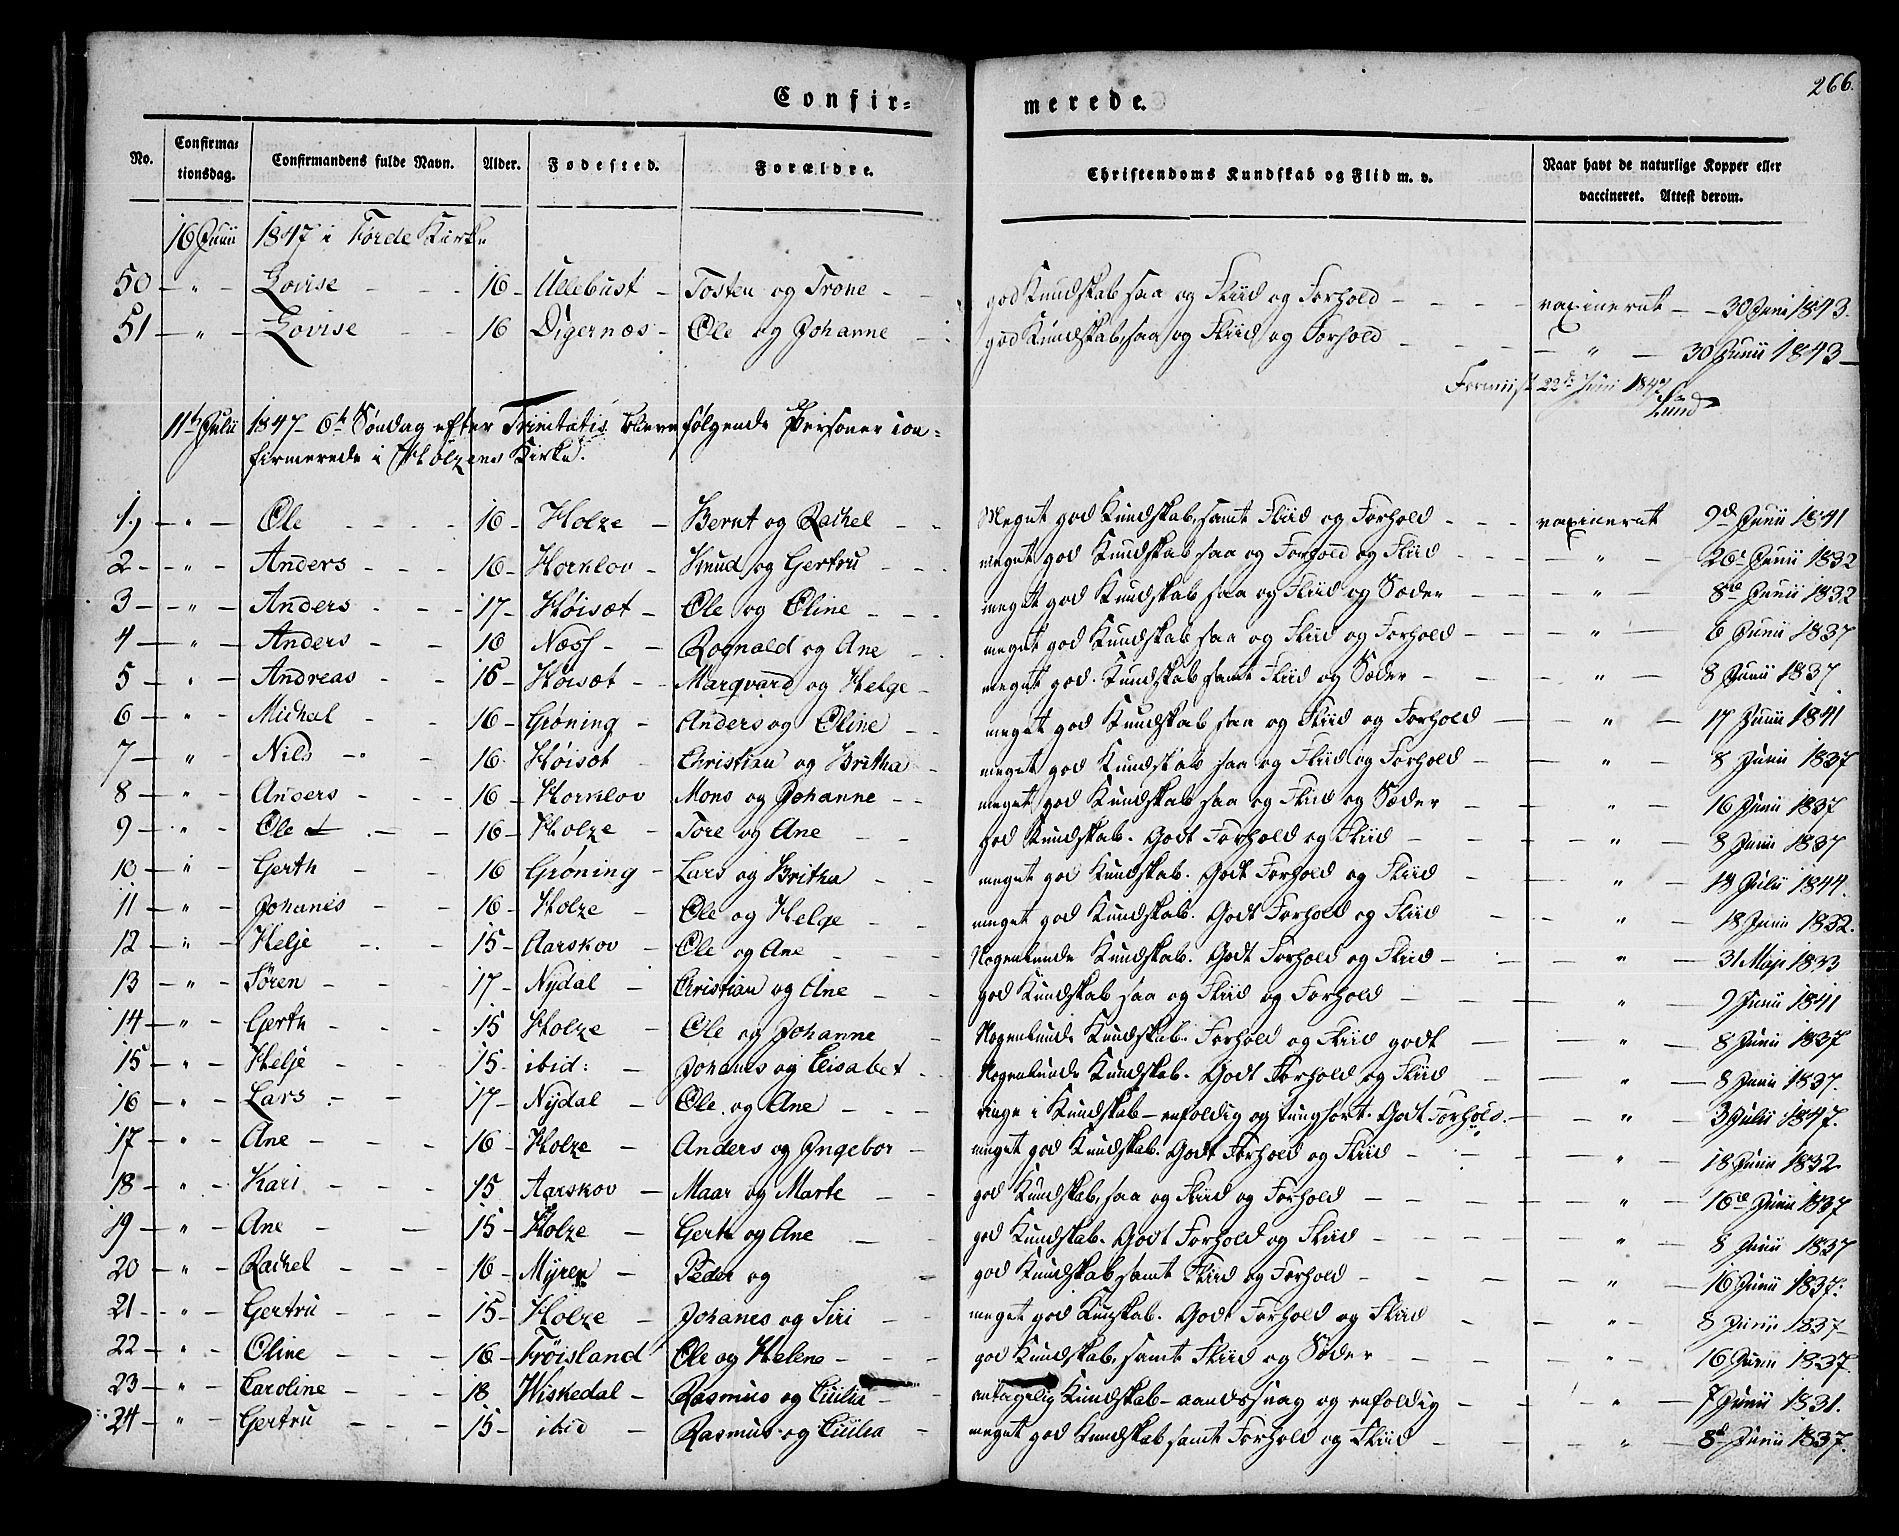 266.
Confir-
merede.
No. Confirma-tionsdag. Confirmandens fulde Navn. Alder. Fødested. Forældre. Christendoms Kundskab og Flid m. v. Naar havt de naturlige Kopper eller vaccineret. Attest derom.
16 Junii 1847 i Førde Kirke
50 — " — Lovise — — 16 — Ullebust — Tosten og Trone — god Kundskab saa og Fliid og Forhold — — — vaxinerat — 30 Juni 1843.
51 — " — Lovise — — 16 Digernæs — Ole og Johanne — god Kundskab, saa og Fliid og Forhold — — — " — 30 Junii 1843 —
22de Juni 1847
11te Julii 1847 — 6te Søndag efter Trinitatis bleve følgende Personer con-
firmerede i Kirke.
1, — " — Ole — — — 16 — Holze — Bernt og Rachel — — Meget god Kundskab, samt Fliid og Forhold — — — vaxinerat 9de Junii 1841
2 — " — Anders — — — 16 — Hornlov — Knud og Gertru — — meget god Kundskab saa og Forhold og Fliid — — — " — 26 Junii 1832
3 — " — Anders — — — 17 — Høisæt — Ole og Oline — — meget god Kundskab saa og Fliid og Sæder — — — " — 8de Junii 1832
4 — " — Anders — — 16 Næss — — Rognald og Ane — — meget god Kundskab saa og Fliid og Forhold — — " — 6 Junii 1837
5 — " — Andreas — — 16 — Høisæt — Marqvard og Helge — meget god Kundskab samt Fliid og Sæder — — — " — 8 Junii 1837
6 — " — Michal — — 16 — Grøning — Anders og Oline — — meget god Kundskab saa og Fliid og Forhold — — " — 17 Junii 1841
7 — " — Nils — — 16. Høisæt — Christian og Britha — meget god Kundskab saa og Fliid og Forhold — — " — 8 Junii 1837
8 — " — Anders — — — 16 — Hornlov Mons og Johanne — — meget god Kundskab saa og Fliid og Sæder — — " — 16 Junii 1837
9 — " — Ole — — 16 — Holze — Tore og Ane — — god Kundskab. Godt Forhold og Fliid — — — " — 8 Junii 1837
10 — " — Gerth — — 16 Grøning — Lars og Britha — — meget god Kundskab. Godt Forhold og Fliid — — " — 18 Julii 1844.
11 — " — Johanes — — 16 — Holze — Ole og Helge — — meget god Kundskab. Godt Forhold og Fliid — — " — 18 Junii 1832.
12 — " — Helje — — 15 — Aarskov — Ole og Ane — — — Nogenlunde Kundskab. Godt Forhold og Fliid — — " — 31 Maji 1833
13 — " — Søren — — — 17 — Nydal — Christian og Ane — — god Kundskab saa og Fliid og Forhold — — — " — 9 Junii 1841
14 — " — Gerth — — — 15 Holze — Ole og Johanne — Nogenlunde Kundskab. Forhold og Fliid godt — — " — 8 Junii 1837
15 — " — Helje — — — 15. ibid: — Johanes og Elisabet — Nogenlunde Kundskab. Godt Forhold og Fliid — — " — 8 Junii 1837.
16 — " — Lars — — 17 — Nydal — Ole og Ane — — — ringe i Kundskab — enfoldig og tunghørt. Godt Forhold. — — " — 3 Julii 1847.
17 — " — Ane — — — 16 — Holze — Anders og Ingebor — meget god Kundskab. Godt Forhold og Fliid — — — " — 18 Junii 1832
18 — " — Kari — — — 15 Aarskov — Maar og Marte — — god Kundskab, saa og Fliid og Forhold — — — " — 16de Junii 1837
19 — " — Ane — — 15 — Holze — Gert og Ane — — god Kundskab. Godt Forhold og Fliid — — — " — 8 Junii 1837
20 — " — Rachel — — — 16 — Myren — Peder og — god Kundskab samt Fliid og Forhold — — — " — 16 Junii 1837.
21 — " — Gertru — — 15 — Holze — Johanes og Siri — — meget god Kunskab. Godt Forhold og Fliid — — " — 8 Junii 1837 —
22 — " — Oline — — — 16 — Frøisland Ole og Helene — — — god Kundskab, samt Fliid og Sæder — — — " — 16 Junii 1837.
23 — " — Caroline — — 18 Wiskedal — Rasmus og Cicilia — antagelig Kundskab — aandssvag og enfoldig — — " — 7 Junii 1831.
24 — " — Gertru — — 15 — ibid — Rasmus og Cicilia — meget god Kundskab samt Forhold og Fliid — — — " — 8de Junii 1837.